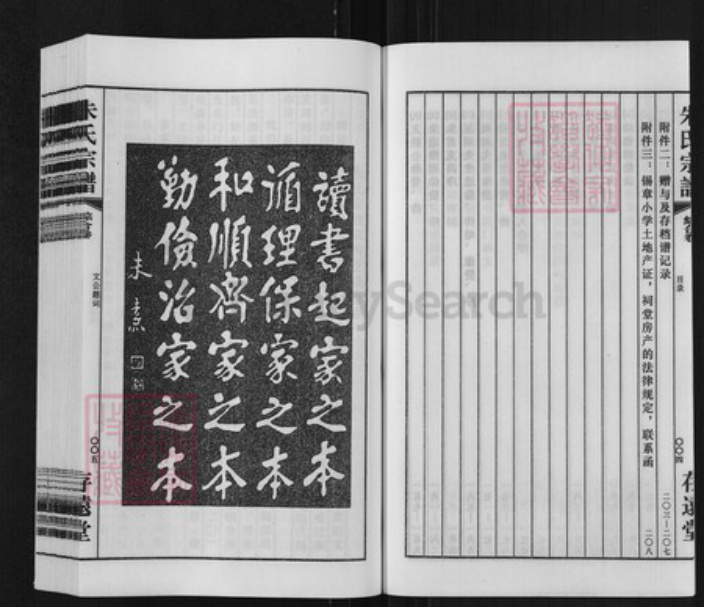 朱氏宗譜
目录
附件二：赠与及存档谱记录
二〇三—二〇七
附件三：锡章小学土地产证，祠堂房产的法律规定，联系函
二〇八
〇〇四
存遠堂
讀書起家之本
循理保家之本
和順齊家之本
勤儉治家之本
朱熹
朱氏宗譜
綜合卷
文公题词
〇〇五
存遠堂
MySearch